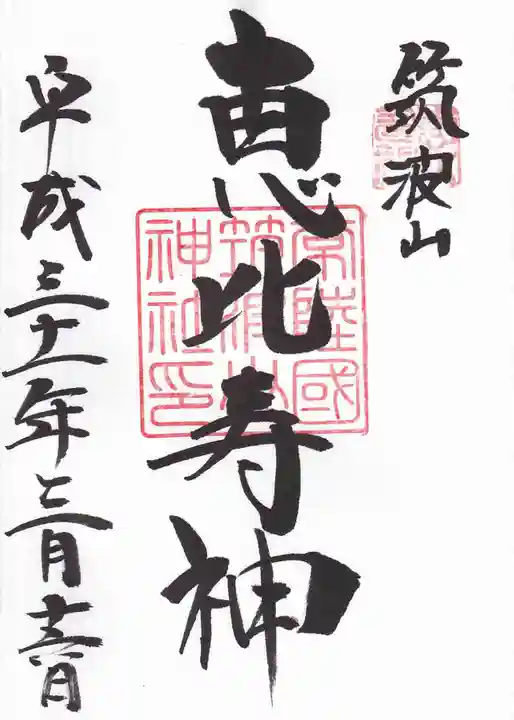 筑波山
恵比寿神
常陸國
筑波山
神社印
平成三十一年三月十六日